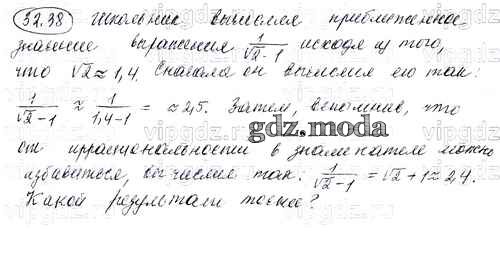 32.38 Школьник вычислял приближенное
значение выражения 1/(√2-1) исходя из того,
что √2≈1,4. Сначала он вычислил его так:
1/(√2-1) ≈ 1/(1,4-1) = ≈2,5. Затем, вспомнив, что
gdz.moda
от иррациональности в знаменателе можно
избавиться, вычислил так: 1/(√2-1) = √2+1≈2,4.
Какой результат точнее?